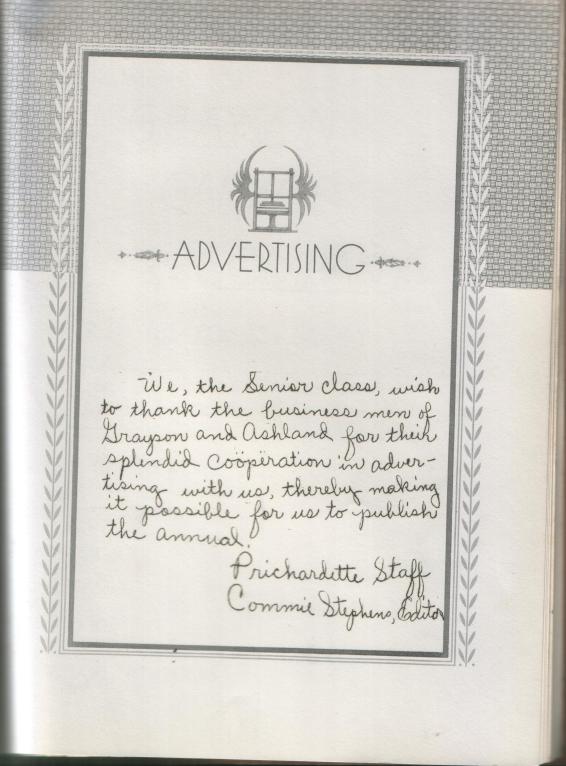 ADVERTISING
We, the Senior class, wish
to thank the business men of
Grayson and Ashland for their
splendid coöperation in adver-
tising with us, thereby making
it possible for us to publish
the annual.
Prichardette Staff
Commie Stephens, Editor